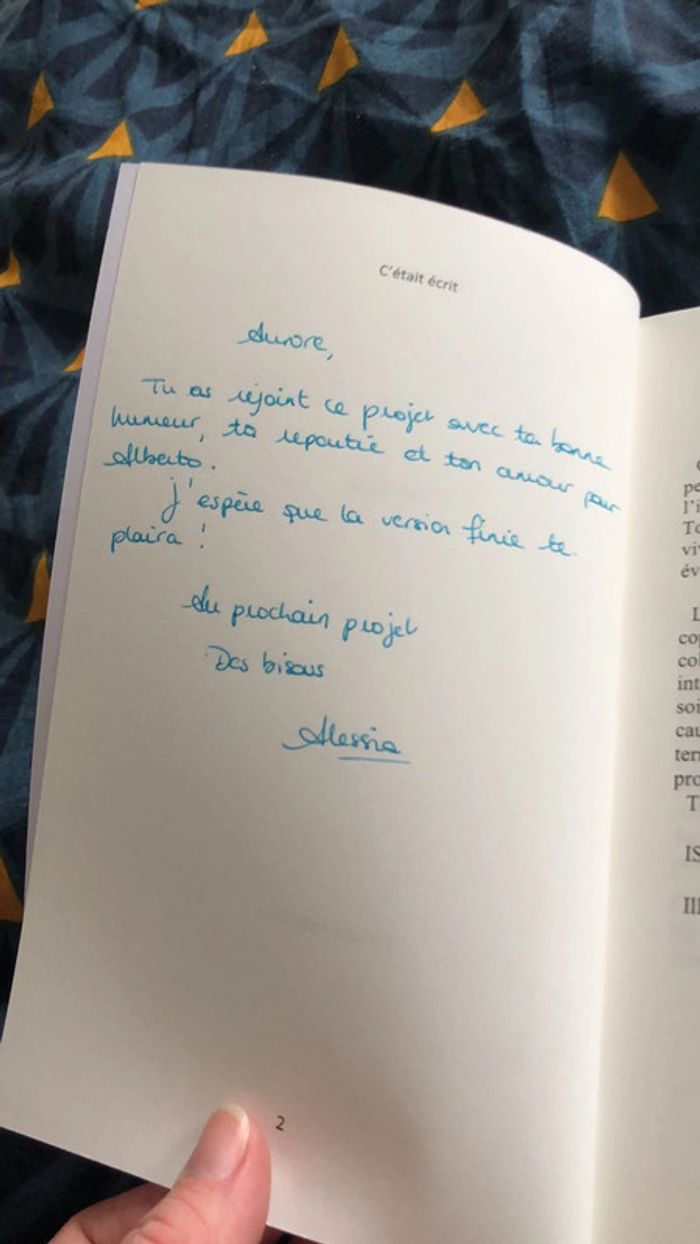 C'était écrit
Aurore,
Tu as rejoint ce projet avec ta bonne
humeur, ta repartie et ton amour pour
Alberto.
J'espère que la version finie te
plaira !
Au prochain projet
Des bisous
Alessia
2
pe
l'i
To
viv
év
L
co
col
int
soi
cau
ter
pro
T
IS
Ill